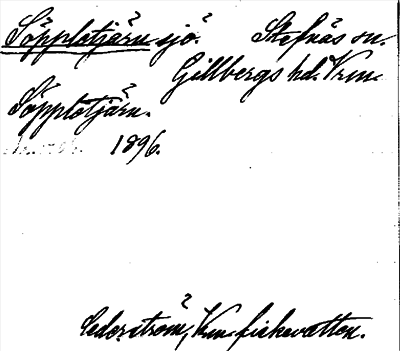 Söpplotjärn sjö. Stefnäs sn.
Gillbergs hd. Vrm.
Söpplotjärn.
1896.
Cederström, Vrm. fiskevatten.